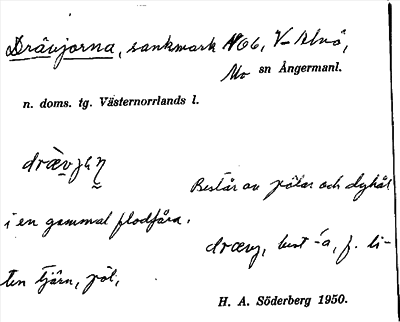 Drävjorna, sankmark NO6, V-Alnö,
Mo sn Ångermanl.
n. doms. tg. Västernorrlands l.
Består av pölar och dyhål
i en gammal flodfåra.
dræv, best -a, f. li-
ten tjärn, pöl,
H. A. Söderberg 1950.